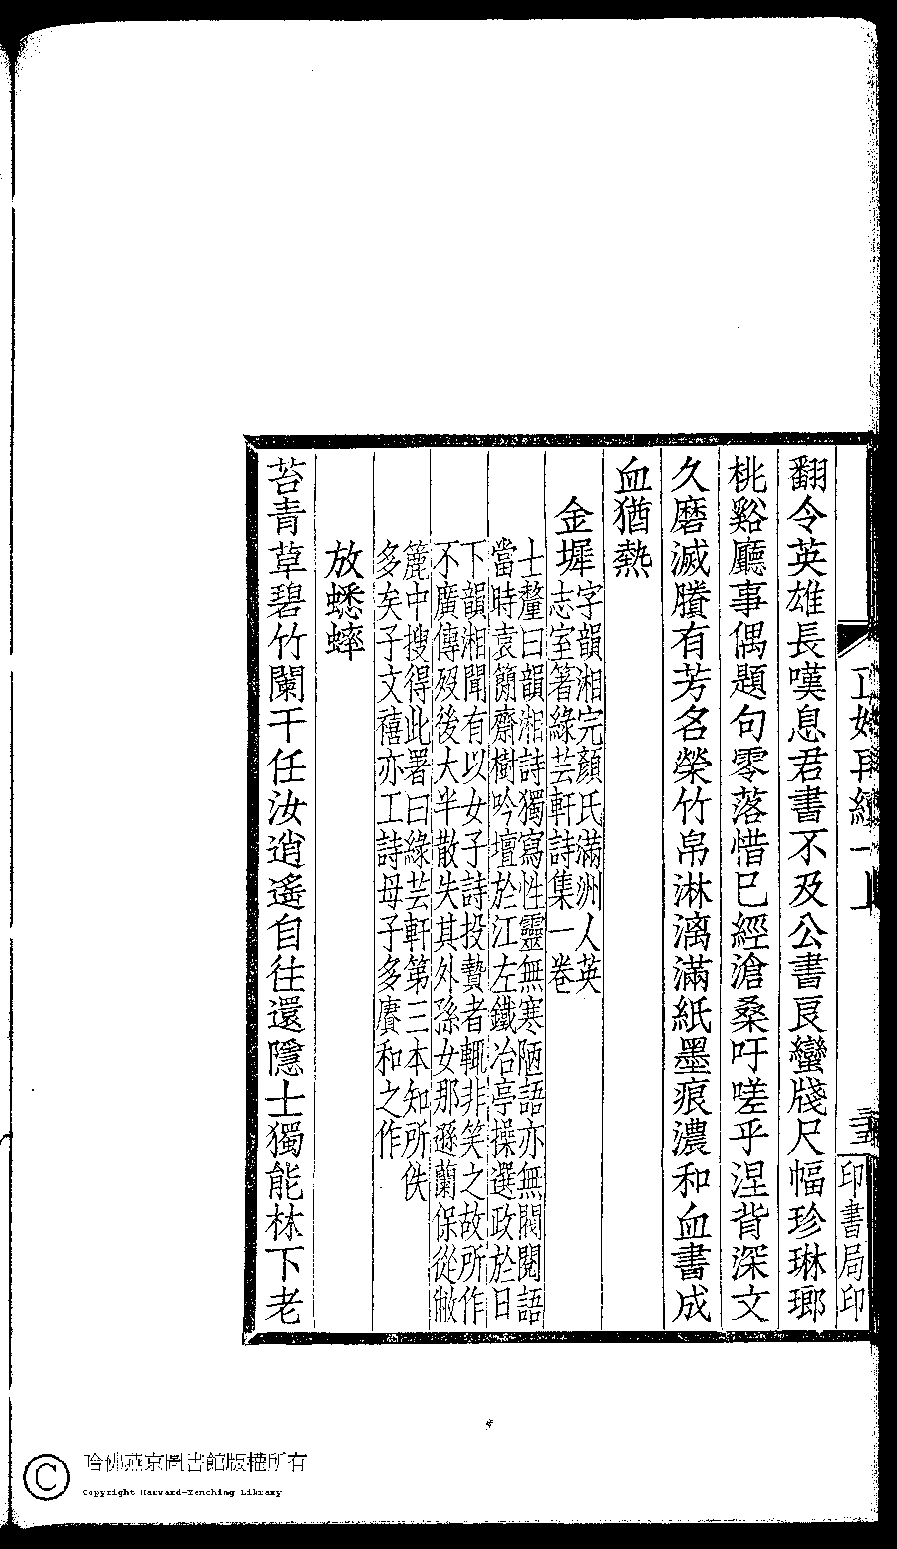 正始再續一上
印書局印
翻令英雄長嘆息君書不及公書良蠻牋尺幅珍琳瑯
桃谿廳事偶題句零落惜已經滄桑吁嗟乎涅背深文
久磨滅賸有芳名榮竹帛淋漓滿紙墨痕濃和血書成
血猶熱
金墀
字韻湘完顏氏滿洲人英
志室箸綠芸軒詩集一卷
士釐曰韻湘詩獨寫性靈無寒陋語亦無閥閱語
當時袁簡齋樹吟壇於江左鐵冶亭操選政於日
下韻湘聞有以女子詩投贄者輒非笑之故所作
不廣傳歿後大半散失其外孫女那遜蘭保從敝
簏中搜得此署曰綠芸軒第三本知所佚
多矣子文禧亦工詩母子多賡和之作
放蟋蟀
苔青草碧竹闌干任汝逍遙自往還隱士獨能林下老
哈佛燕京圖書館版權所有
Copyright Harvard-Yenching Library